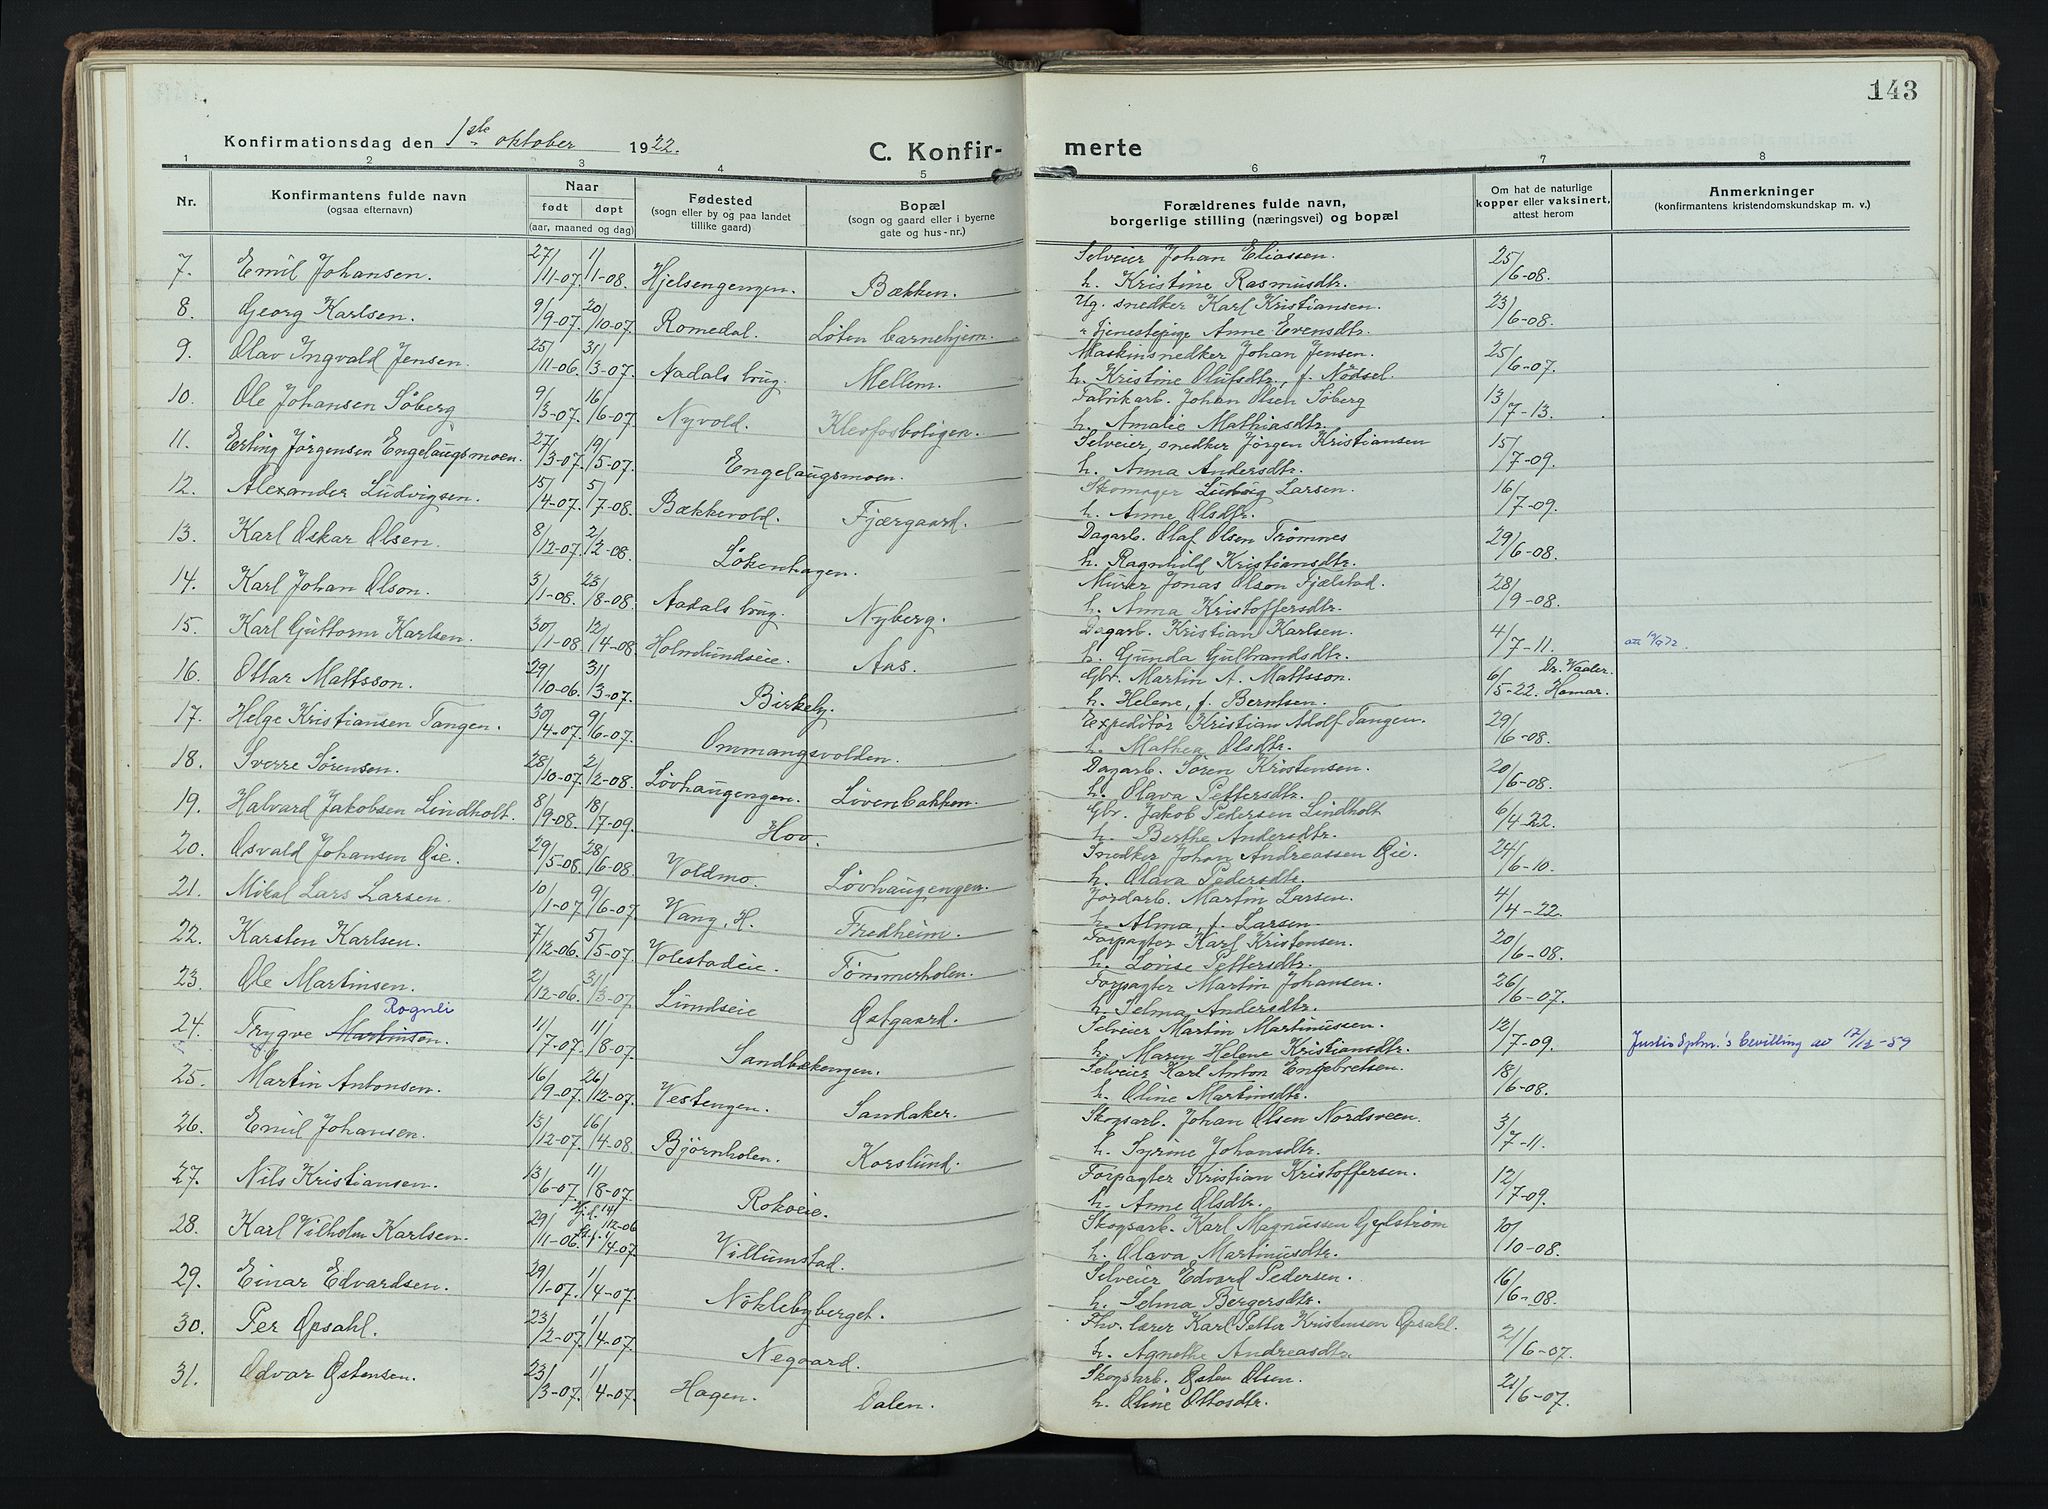 143
Konfirmationsdag den 1ste oktober 1922.
C. Konfirmerte
1 2 3 4 5 6 7 8
Nr. Konfirmantens fulde navn (ogsaa efternavn) Naar født døpt (aar, maaned og dag) Fødested (sogn eller by og paa landet tillike gaard) Bopæl (sogn og gaard eller i byerne gate og hus-nr.) Forældrenes fulde navn, borgerlige stilling (næringsvei) og bopæl Om hat de naturlige kopper eller vaksinert, attest herom Anmerkninger (konfirmantens kristendomskundskap m. v.)
7. Emil Johansen. 27/11-07. 1/1-08. Hjelsengengen. Bækken. Selveier Johan Eliassen. 25/6-08.
h. Kristine Rasmusdtr.
8. Georg Karlsen. 9/9-07. 20/10-07. Romedal. Løten barnehjem. Ug. snedker Karl Kristiansen. 23/6-08.
" Tjenestepige Anne Evensdtr.
9. Olav Ingvald Jensen. 25/11-06. 31/3-07. Aadals brug. Mellem. Maskinsnedker Johan Jensen. 25/6-07.
h. Kristine Olufsdtr., f. Nödsel.
10. Ole Johansen Søberg 9/3-07. 16/6-07. Nyvold. Klevfosboligen. Fabrikarb. Johan Olsen Søberg 13/7-13.
h. Amalie Mathiasdtr.
11. Erling Jørgensen Engelaugsmoen. 27/3-07. 19/5-07. Engelaugsmoen. Selveier, snedker Jørgen Kristiansen 15/7-09.
h. Anna Andersdtr.
12. Alexander Ludvigsen. 15/4-07. 5/7-08. Bækkevold. Fjærgaard. Skomager Ludvig Larsen. 16/7-09.
h. Anne Olsdtr.
13. Karl Oskar Olsen. 8/12-07. 2/2-08. Løkenhagen. Dagarb. Olaf Olsen Trømnes 29/6-08.
h. Ragnhild Kristiansdtr.
14. Karl Johan Olson. 3/1-08. 23/8-08. Aadals brug. Nyberg. Murer Jonas Olson Fjælstad. 28/9-08.
h. Anna Kristoffersdtr.
15. Karl Guttorm Karlsen. 30/1-08. 12/4-08. Holmlundseie. Aas. Dagarb. Kristian Karlsen. 4/7-11.
h. Gunda Gulbrandsdtr.
16. Ottar Mattsson. 29/10-06. 31/3-07. Birkeby. Gbr. Martin A. Mattsson. 6/5-22. Dr. Vaaler. Hamar.
h. Helene, f. Berntsen.
17. Helge Kristiansen Tangen. 30/4-07. 9/6-07. Ommangsvolden. Expeditör Kristian Adolf Tangen. 29/6-08.
h. Mathea Olsdtr.
18. Sverre Sørensen. 28/10-07. 2/2-08. Løvhaugengen. Løvenbakken. Dagarb. Søren Kristensen. 20/6-08.
h. Olava Pettersdtr.
19. Halvard Jakobsen Lindholt. 8/9-08. 18/7-09. Hov. Gbr. Jakob Pedersen Lindholt 6/4-22.
h. Berthe Andersdtr.
20. Osvald Johansen Øie. 29/5-08. 28/6-08. Voldmo. Løvhaugengen. Snedker Johan Andreassen Øie. 24/6-10.
h. Olava Pedersdtr.
21. Mikal Lars Larsen. 10/1-07. 9/6-07. Vang, H. Fredheim. Jordarb. Martin Larsen. 4/4-22.
h. Alma, f. Larsen.
22. Karsten Karlsen. 7/12-06. 5/5-07. Volestadeie. Tömmerholen. Forpagter Karl Kristensen. 20/6-08.
h. Lovise Pettersdtr.
23. Ole Martinsen. 2/12-06. 31/3-07. Lundseie Østgaard. Forpagter Martin Johansen. 26/6-07.
h. Selma Andersdtr.
Rognli
24. Trygve Martinsen. 11/7-07. 11/8-07. Sandbækengen. Selveier Martin Martinussen. 12/7-09. Justisdptm.'s bevilling av 17/12-59
h. Maren Helene Kristiansdtr.
25. Martin Antonsen. 16/9-07. 26/12-07. Vestengen. Sandaker. Selveier Karl Anton Engebretsen. 18/6-08.
h. Oline Martinsdtr.
26. Emil Johansen. 13/12-07. 16/4-08. Bjørnholen. Korslund. Skogsarb. Johan Olsen Nordsveen. 3/7-11.
h. Syrine Johansdtr.
27. Nils Kristiansen. 13/6-07. 11/8-07. Rokoeie. Forpagter Kristian Kristoffersen. 12/7-09.
h. Anne Olsdtr.
28. Karl Vilhelm Karlsen. 29/11-06. Hjd. 14/12-06 1/4-07. Villumstad. Skogsarb. Karl Magnussen Gylstrøm 20/10-08.
h. Olava Martinusdtr.
29. Einar Edvardsen. 29/1-07. 1/4-07. Nöklebyberget. Selveier Edvard Pedersen. 16/6-08.
h. Selma Bergersdtr.
30. Per Opsahl. 23/2-07. 1/4-07. Negaard. Fhv. lærer Karl Petter Kristensen Opsahl. 21/6-07.
h. Agnethe Andreasdtr.
31. Odvar Østensen. 23/3-07. 1/4-07. Hagen. Dalen. Skogsarb. Østen Olsen. 21/6-07.
h. Oline Ottosdtr.